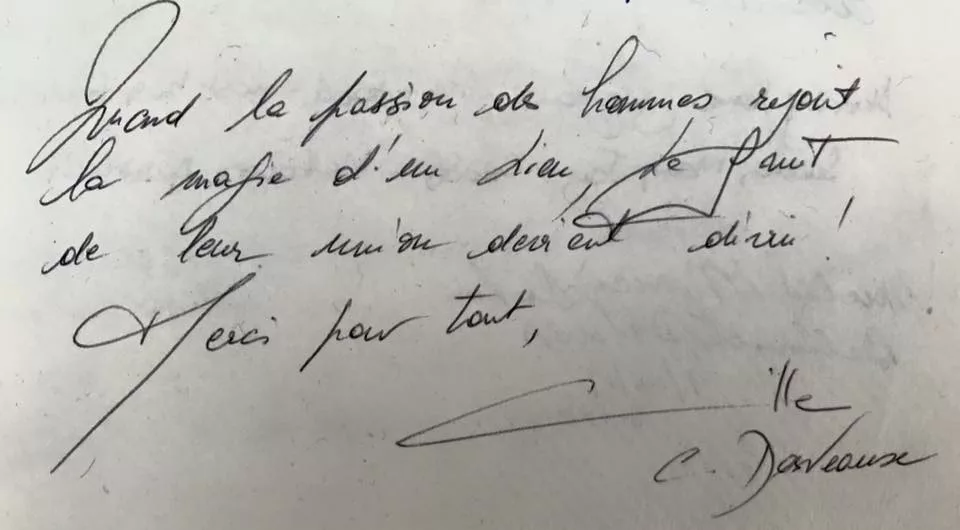 Quand la passion de hommes rejoint
la magie d'un lieu, le fruit
de leur union devient divin !
Merci pour tout,
C. Desveaux